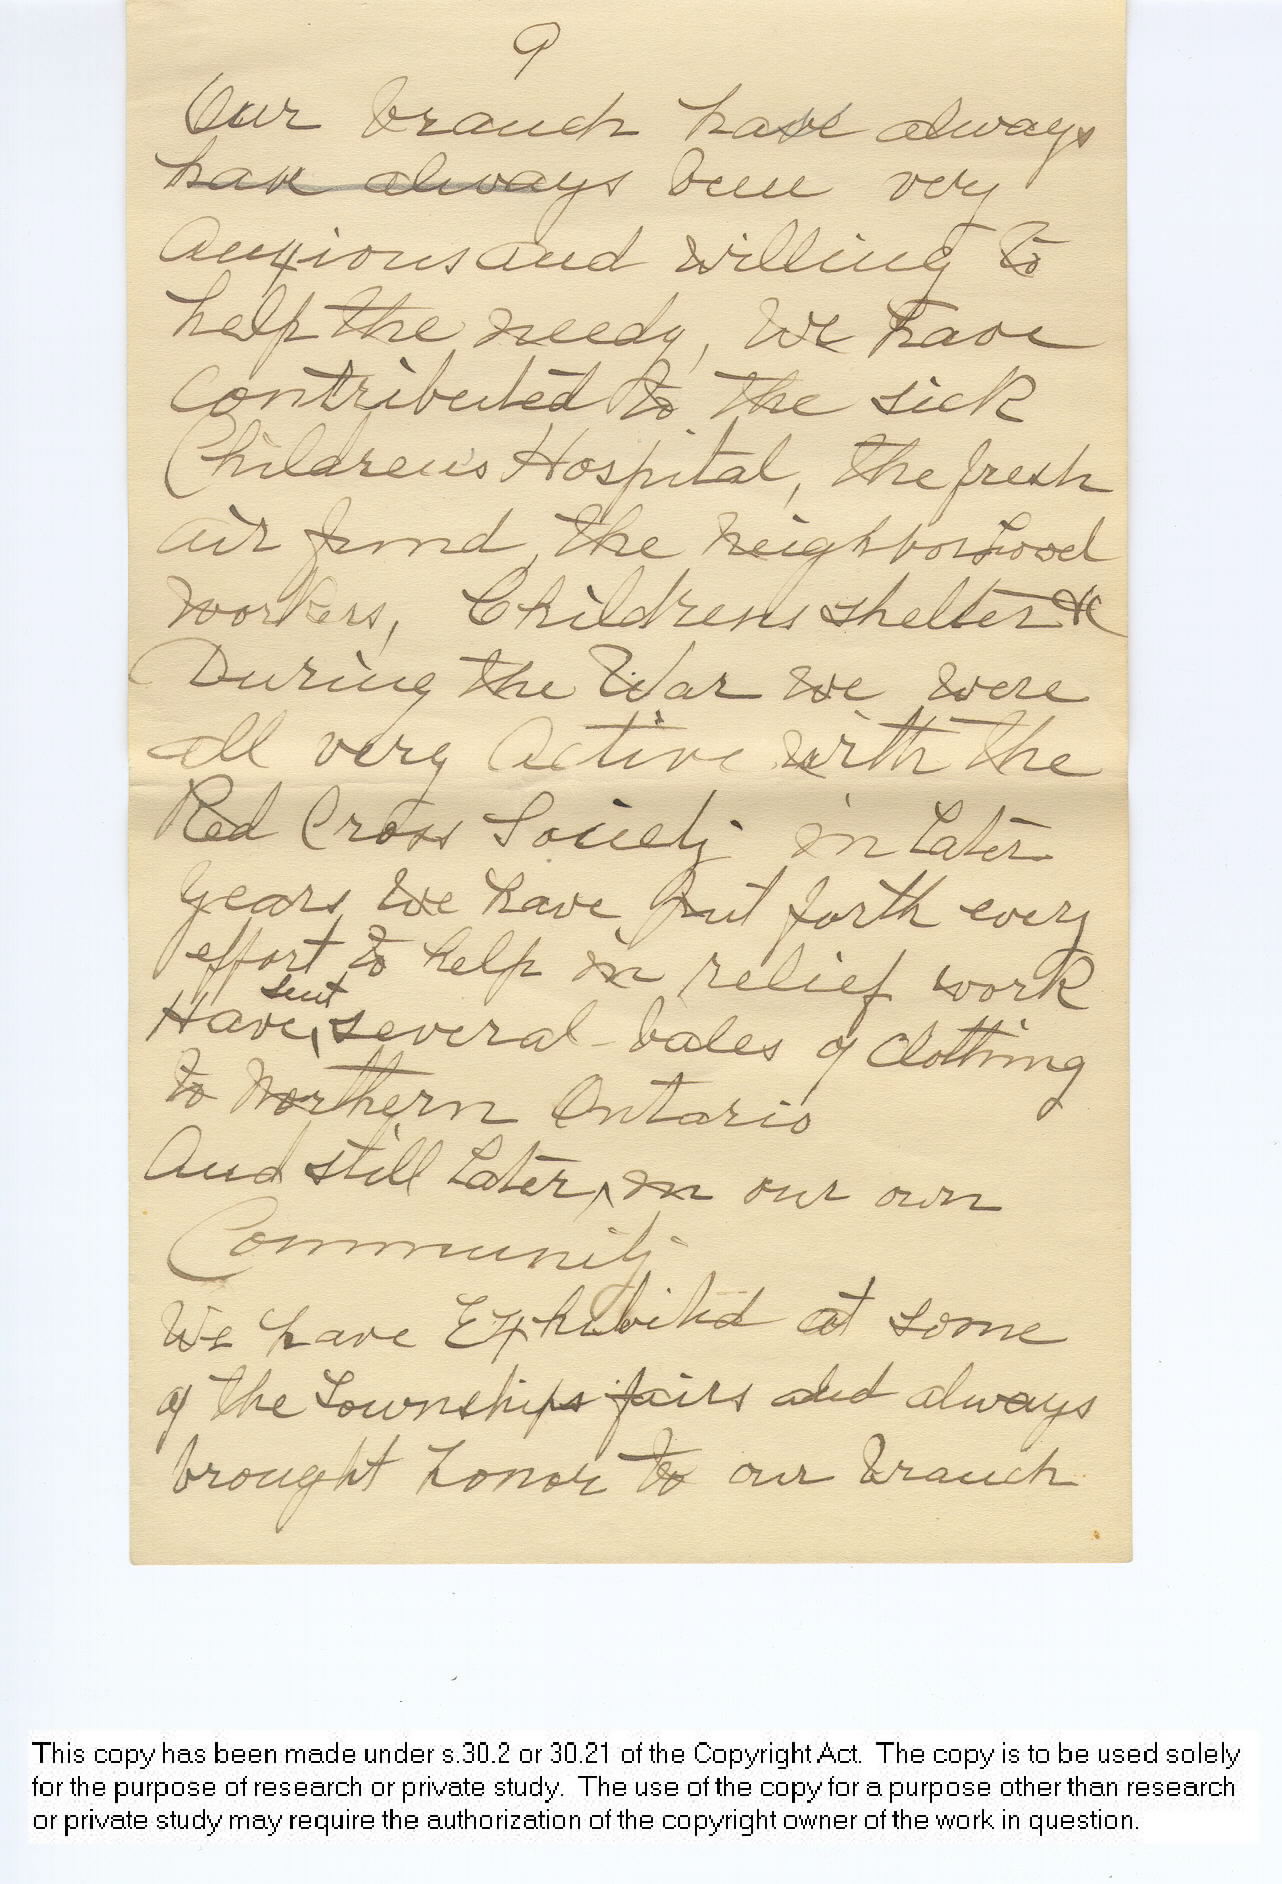 9
Our branch have always
have always been very
anxious and willing to
help the needy, We have
contributed to the sick
Children's Hospital, the fresh
air fund, the neighborhood
workers, Childrens shelter &c
During the War we were
all very active with the
Red Cross Society in later
years we have put forth every
effort to help in relief work
sent
Have ^ several bales of clothing
to Northern Ontario
And still later, in our own
Community
We have Exhibited at some
of the Townships fairs and always
brought honor to our branch
This copy has been made under s.30.2 or 30.21 of the Copyright Act. The copy is to be used solely
for the purpose of research or private study. The use of the copy for a purpose other than research
or private study may require the authorization of the copyright owner of the work in question.